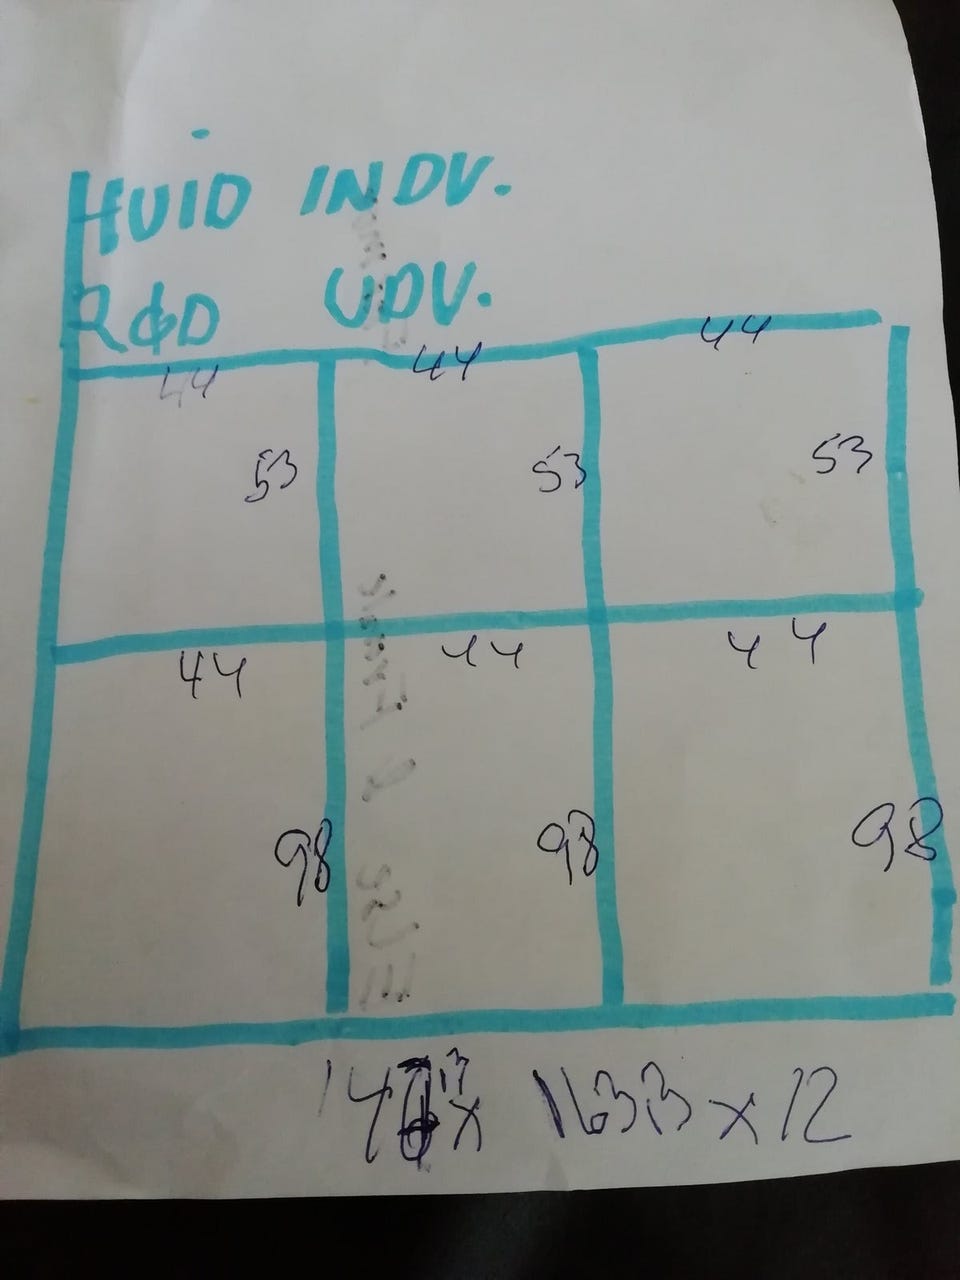 HUID INDV.
RØD UDV.
44 44 44
53 53 53
44 44 44
98 98 98
163,3 x 12